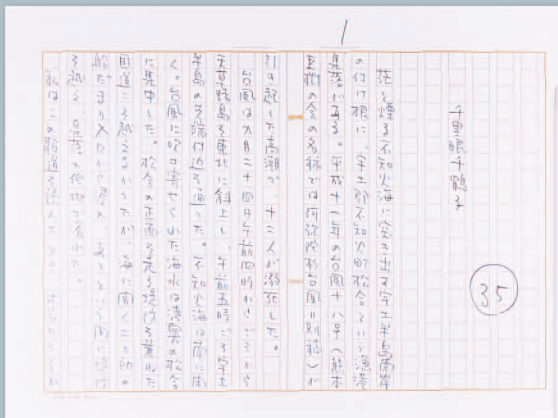 1
35
千里眼千鶴子
茫と煙る不知火海に突き出る宇土半島南岸
の付け根に、宇土郡不知火町松合という漁港
集落がある。平成十一年の台風十八号(熊本
の会の名称では 台風=別称)が
引き起した高潮で、十二人が溺死した。
台風は九月二十四日午前四時 から
天草諸島を東北に斜上し、午前五時ごろ宇土
半島の先端付近を通った。不知火海は南に開
く。台風に吹き寄せられた海水は湾奥の松合
に集中した。松合の正面を走る堤防を兼ねた
国道こそ越え なかったが、海に開く
船だまり入口から 、あっという間に堤防
を越え、集落の低地に 。
私はこの